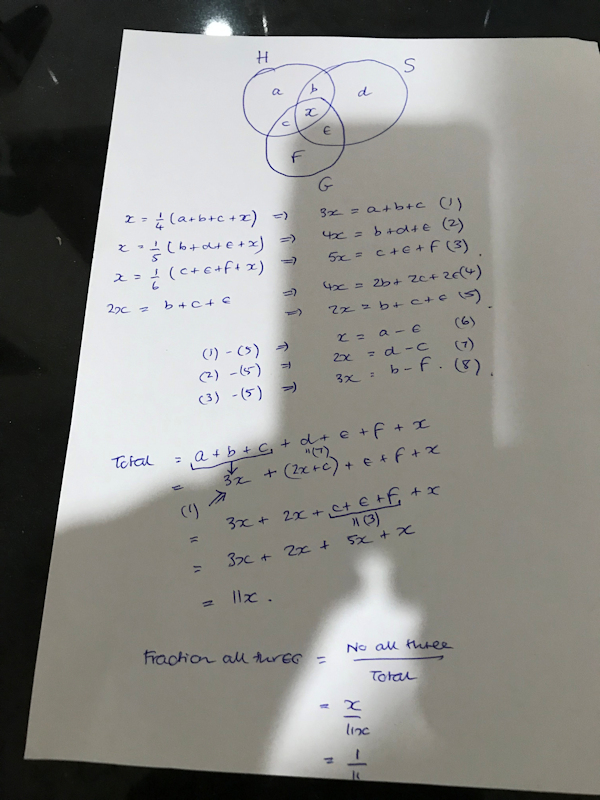 H
S
a b d
x
c e
F
G
x = 1/4 (a+b+c+x) => 3x = a+b+c (1)
x = 1/5 (b+d+e+x) => 4x = b+d+e (2)
x = 1/6 (c+e+f+x) => 5x = c+e+f (3).
2x = b+c+e => 4x = 2b+2c+2e(4)
=> 2x = b+c+e (5).
(1) - (5) => x = a-e (6)
(2) - (5) => 2x = d-c (7)
(3) - (5) => 3x = b-f. (8).
Total = a+b+c + d + e + f + x
"(7)
= 3x + (2x+c) + e + f + x
(1)
= 3x + 2x + c+e+f + x
"(3)
= 3x + 2x + 5x + x
= 11x.
Fraction all three = No all three / Total
= x / 11x
= 1 / 11